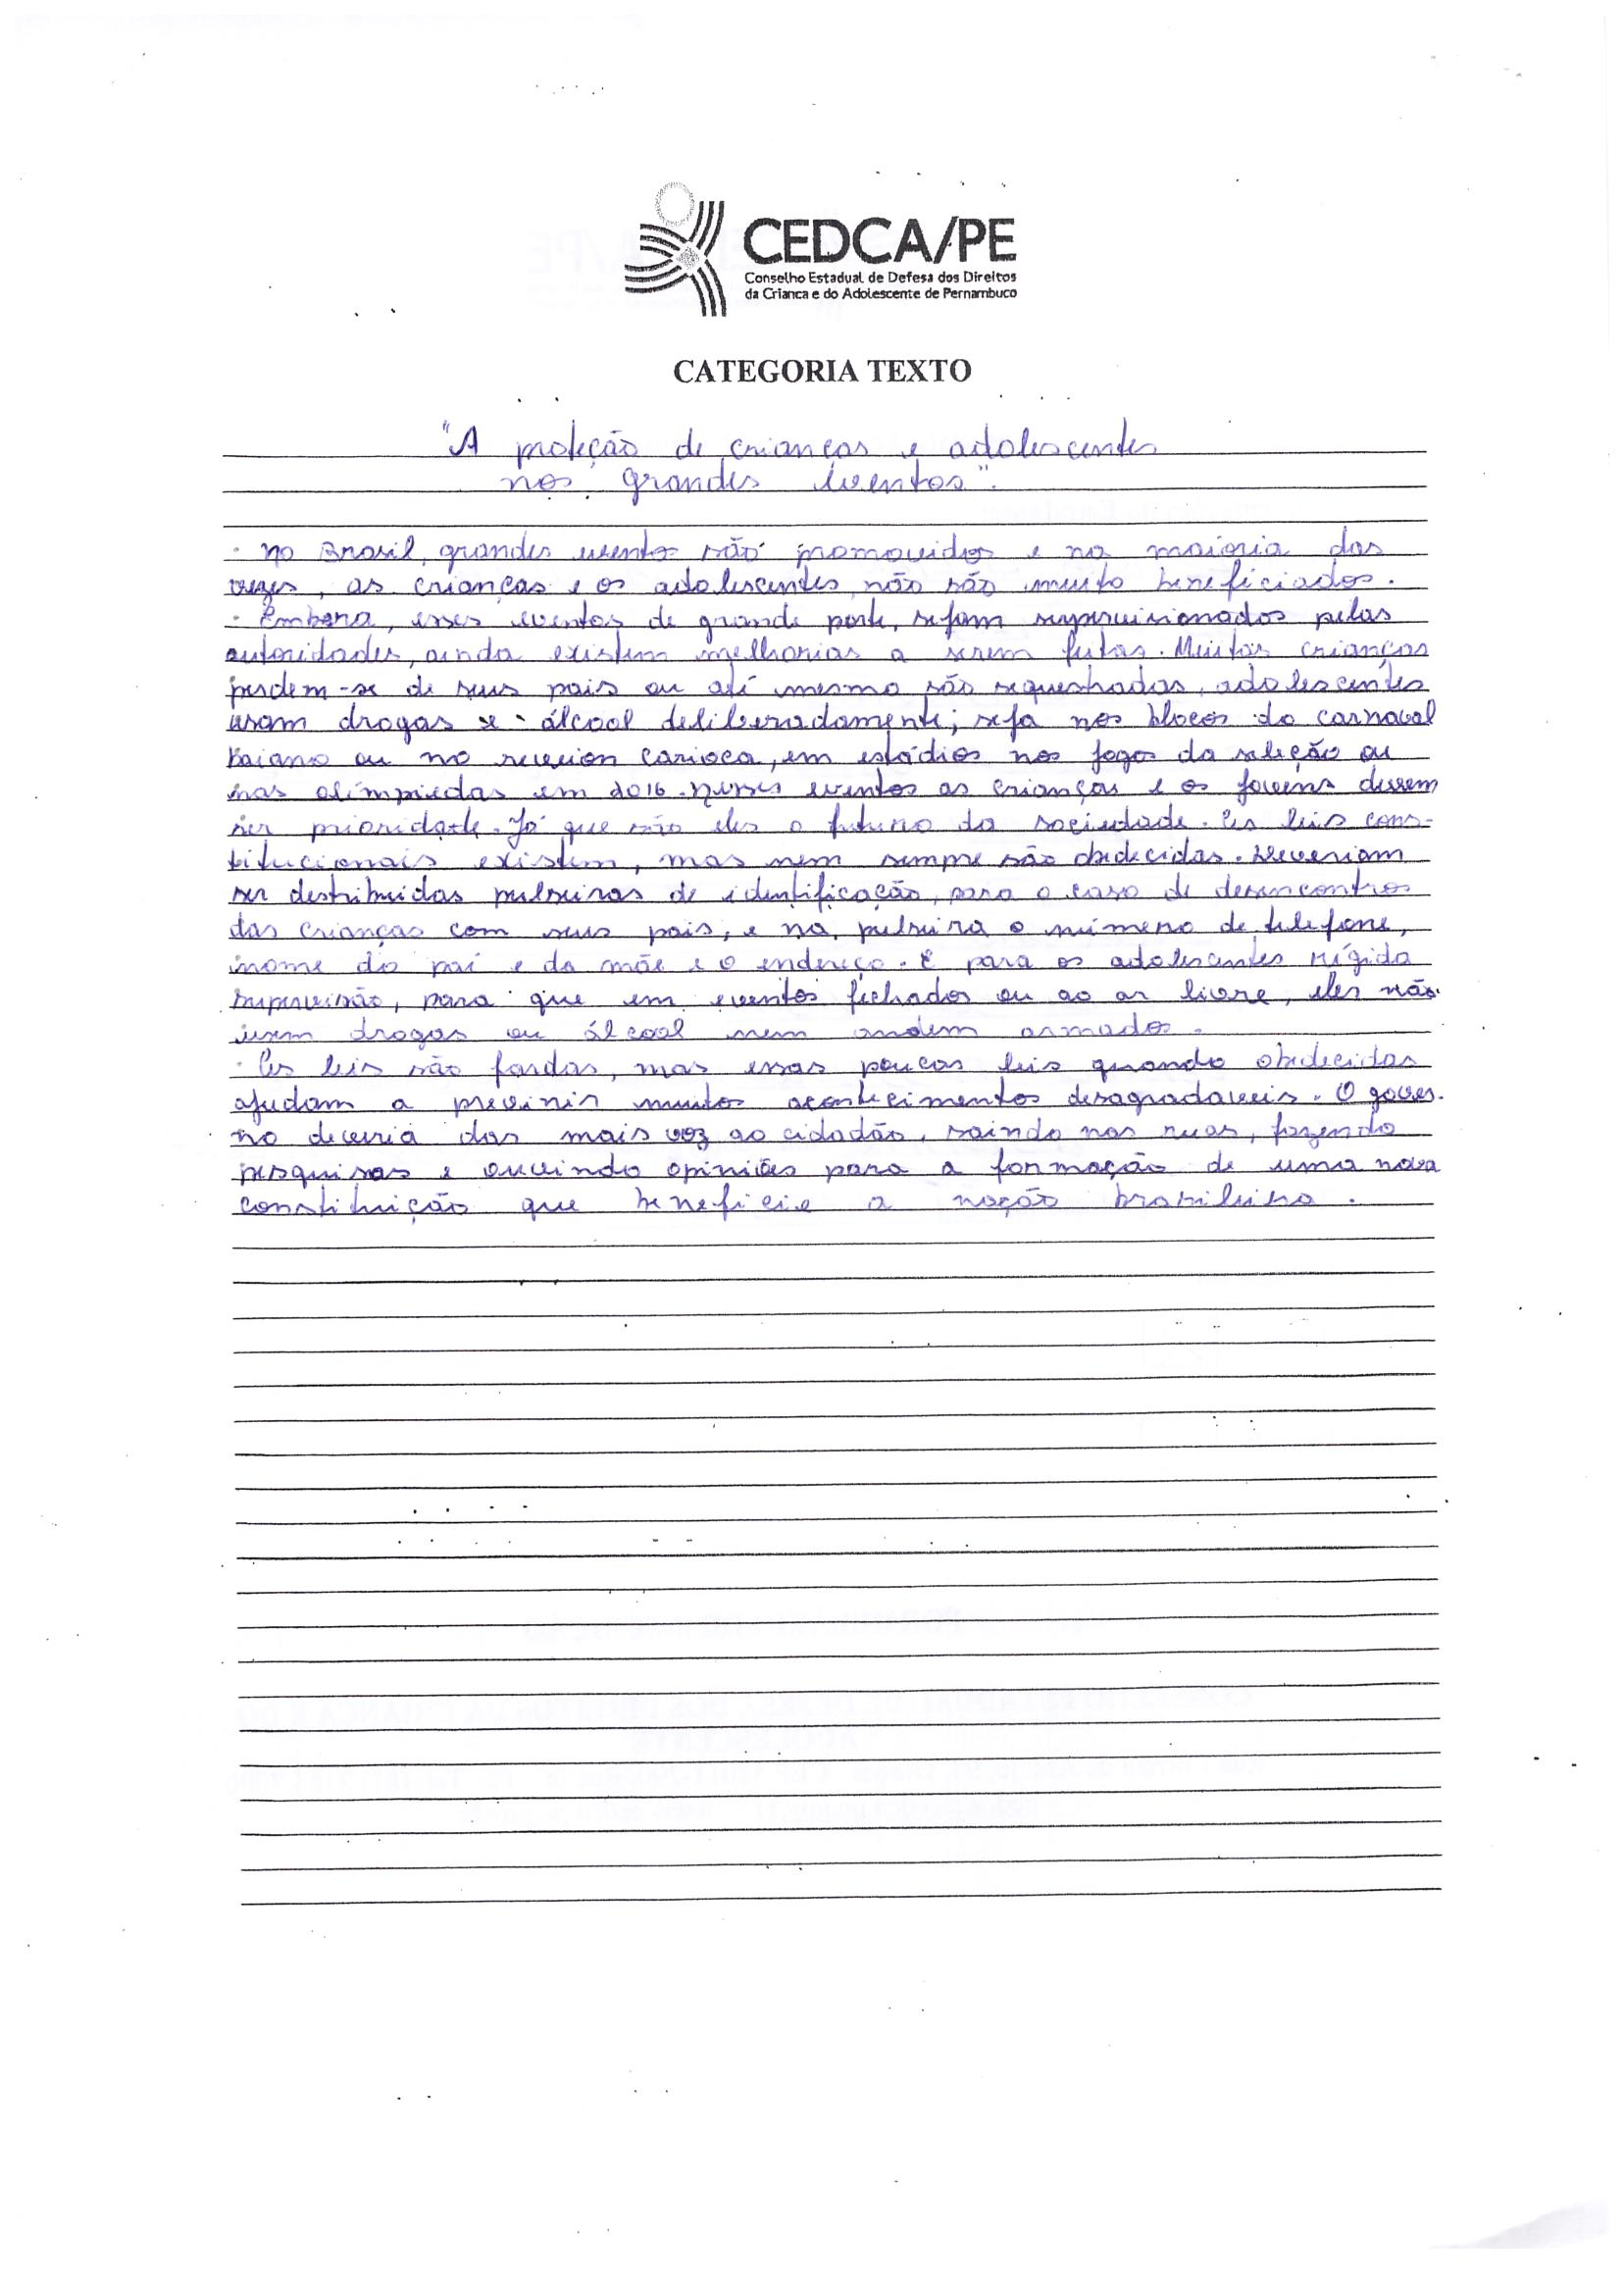 CEDCA/PE
Conselho Estadual de Defesa dos Direitos
da Crianca e do Adolescente de Pernambuco
CATEGORIA TEXTO
"A proteção de crianças e adolescentes
nos grandes eventos".
No Brasil, grandes evento são promovidos e na maioria das
vezes, as crianças e os adolescentes não são muito beneficiados.
Embora, esses eventos de grande porte, sejam supervisionados pelas
autoridades, ainda existem melhorias a serem feitas. Muitas crianças
perdem-se de seus pais ou até mesmo são sequestradas, adolescentes
usam drogas e álcool deliberadamente; seja nos blocos do carnaval
baiano ou no reveion carioca, em estádios nos jogos da seleção ou
nas olímpiedas em 2016. Nesses eventos as crianças e os jovens devem
ser prioridade. Já que são eles o futuro da sociedade. As leis cons-
titucionais existem, mas nem sempre são obedecidas. Deveriam
ser destribuidas pulseiras de identificação, para o caso de desencontros
das crianças com seus pais, e na pulseira o número de telefone,
nome do pai e da mãe e o endereço. E para os adolescentes rígida
supervisão, para que em eventos fechados ou ao ar livre, eles não
usem drogas ou álcool nem andem armados.
As leis são fardas, mas essas poucas leis quando obedecidas
ajudam a previnir muitos acontecimentos desagradaveis. O gover-
no deveria dar mais voz ao cidadão, saindo nas ruas, fazendo
pesquisas e ouvindo opiniões para a formação de uma nova
constituição que beneficie a nação brasileira.